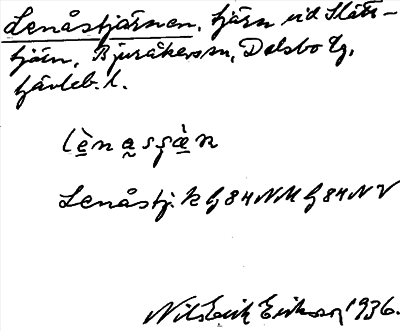 Lenåstjärnen, tjärn vid Slått-
tjärn, Bjuråkerssn, Delsbo tg,
Gävleb. l.
lènasʂæ̀n
Lenåstj. k G 84 NM G 84 NV
Nils Erik Erikson 1936.